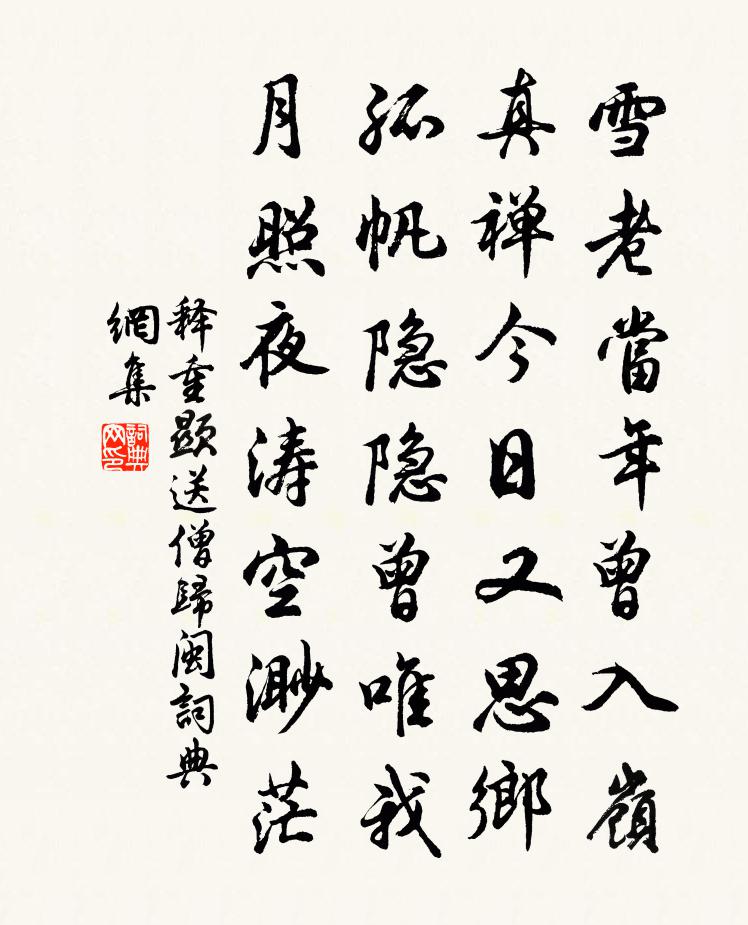 雪老當年曾入嶺
真禅今日又思鄉
孤帆隐隐曾唯我
月照夜涛空渺茫
释重顯送僧歸閩詞典
網集
詞典網印